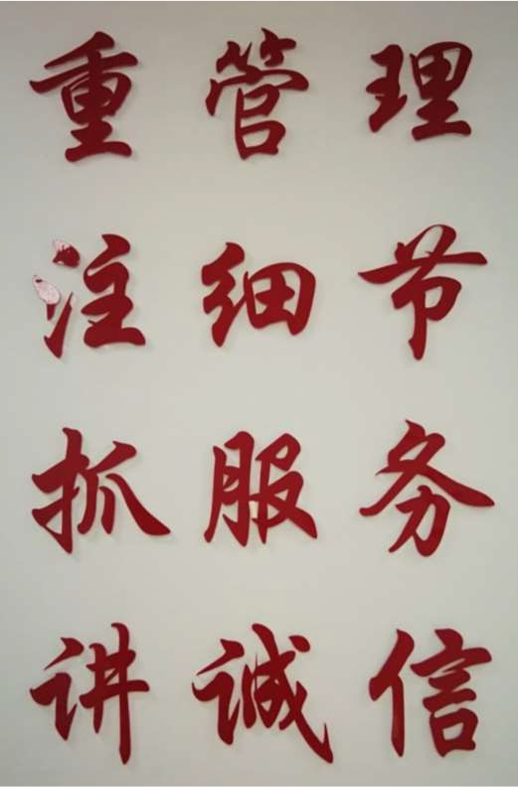 重管理
注细节
抓服务
讲诚信